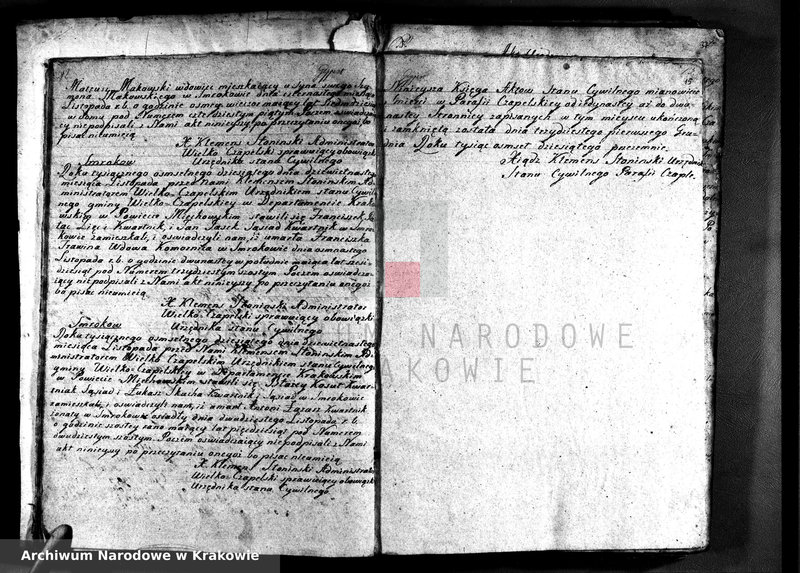 Mateusz Makowski wdowiec mieszkaiący u Syna swego Szy
mona Makowskiego w Smrokowie dnia czternastego miesiąca
Listopada r.b. o godzinie osmey wieczor maiący lat
w domu pod Numerem czterdziestym piątym Poczem oswiadcza
iący niepodpisali z Nami akt ninieyszy po przeczytaniu onegoż bo
pisać nieumieią
X. Klemens Stoninski Administrator
Wielko Czapelski sprawuiący obowiązki
Urzędnika stanu Cywilnego
Smrokow
Roku tysiącznego osmsetnego dziesiątego dnia dziewiętnastego
miesiąca Listopada przed Nami Klemensem Stoninskim Ad
ministratorem Wielko-Czapelskim Urzędnikiem stanu Cywil
nego gminy Wielko-Czapelskiey w Departamencie Krako
wskim w Powiecie Miechowskim stawili się Franciszek
Zięć i Kwartnik, i Jan Jasek Sąsiad Kwartnik w Smro
kowie zamieszkali, i oswiadczyli nam, iż umarła Franciszka
Trawina Wdowa Komornica w Smrokowie dnia osmnastego
Listopada r.b. o godzinie dwunastey w południe maiąca lat sześ
dziesiąt pod Numerem trzydziestym szostym. Poczem oswiadcza
iący niepodpisali z Nami akt ninieyszy po przeczytaniu onegoż
bo pisać nieumieią
X. Klemens Stoninski Administrator
Wielko Czapelski sprawuiący obowiązki
Urzędnika stanu Cywilnego
Smrokow
Roku tysiącznego osmsetnego dziesiątego dnia dziewiętnastego
miesiąca Listopada przed Nami Klemensem Stoninskim Ad
ministratorem Wielko Czapelskim Urzędnikiem stanu Cywilnego
gminy Wielko-Czapelskiey w Departamencie Krakowskim
w Powiecie Miechowskim stawili się Błażey Kosut Kwar
tniak Sąsiad i Łukasz Skucha Kwartnik i Sąsiad w Smrokowie
zamieszkali, i oswiadczyli nam, iż umarł Antoni Łazarz Kwartnik
żonaty w Smrokowie osiadły dnia dwudziestego Listopada r.b.
o godzinie szostey rano maiący lat pięćdziesiąt pod Numerem
dwudziestym szostym. Poczem oswiadczaiący niepodpisali z Nami
akt ninieyszy po przeczytaniu onegoż bo pisać nieumieią
X. Klemens Stoninski Administrator
Wielko Czapelski sprawuiący obowiązki
Urzędnika stanu Cywilnego
Ninieysza Księga Aktow Stanu Cywilnego mianowicie
Smierci w Parafii Czapelskiey od iedynastey aż do dwu
nastey Stronnicy zapisanych w tym mieyscu ukończoną
i zamkniętą została dnia trzydziestego pierwszego Gru
dnia Roku tysiąc osmset dziesiątego
Xiądz Klemens Stoninski Urzędnik
Stanu Cywilnego Parafii Czaple.
NARODOWE
KRAKOWIE
Archiwum Narodowe w Krakowie